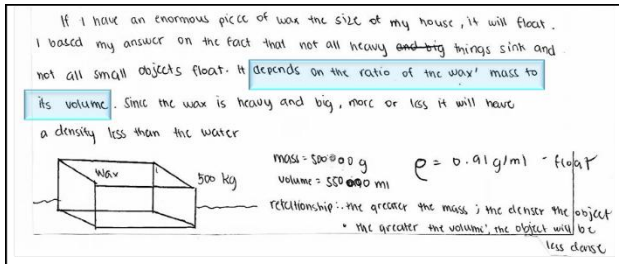 If I have an enormous piece of wax the size of my house, it will float.
I based my answer on the fact that not all heavy and big things sink and
not all small objects float. It depends on the ratio of the wax' mass to
its volume. Since the wax is heavy and big, more or less it will have
a density less than the water
wax
500 kg
mass = 500000 g
volume = 550000 ml
ρ = 0.91 g/ml - float
relationship: the greater the mass; the denser the object
• the greater the volume, the object will be
less dense